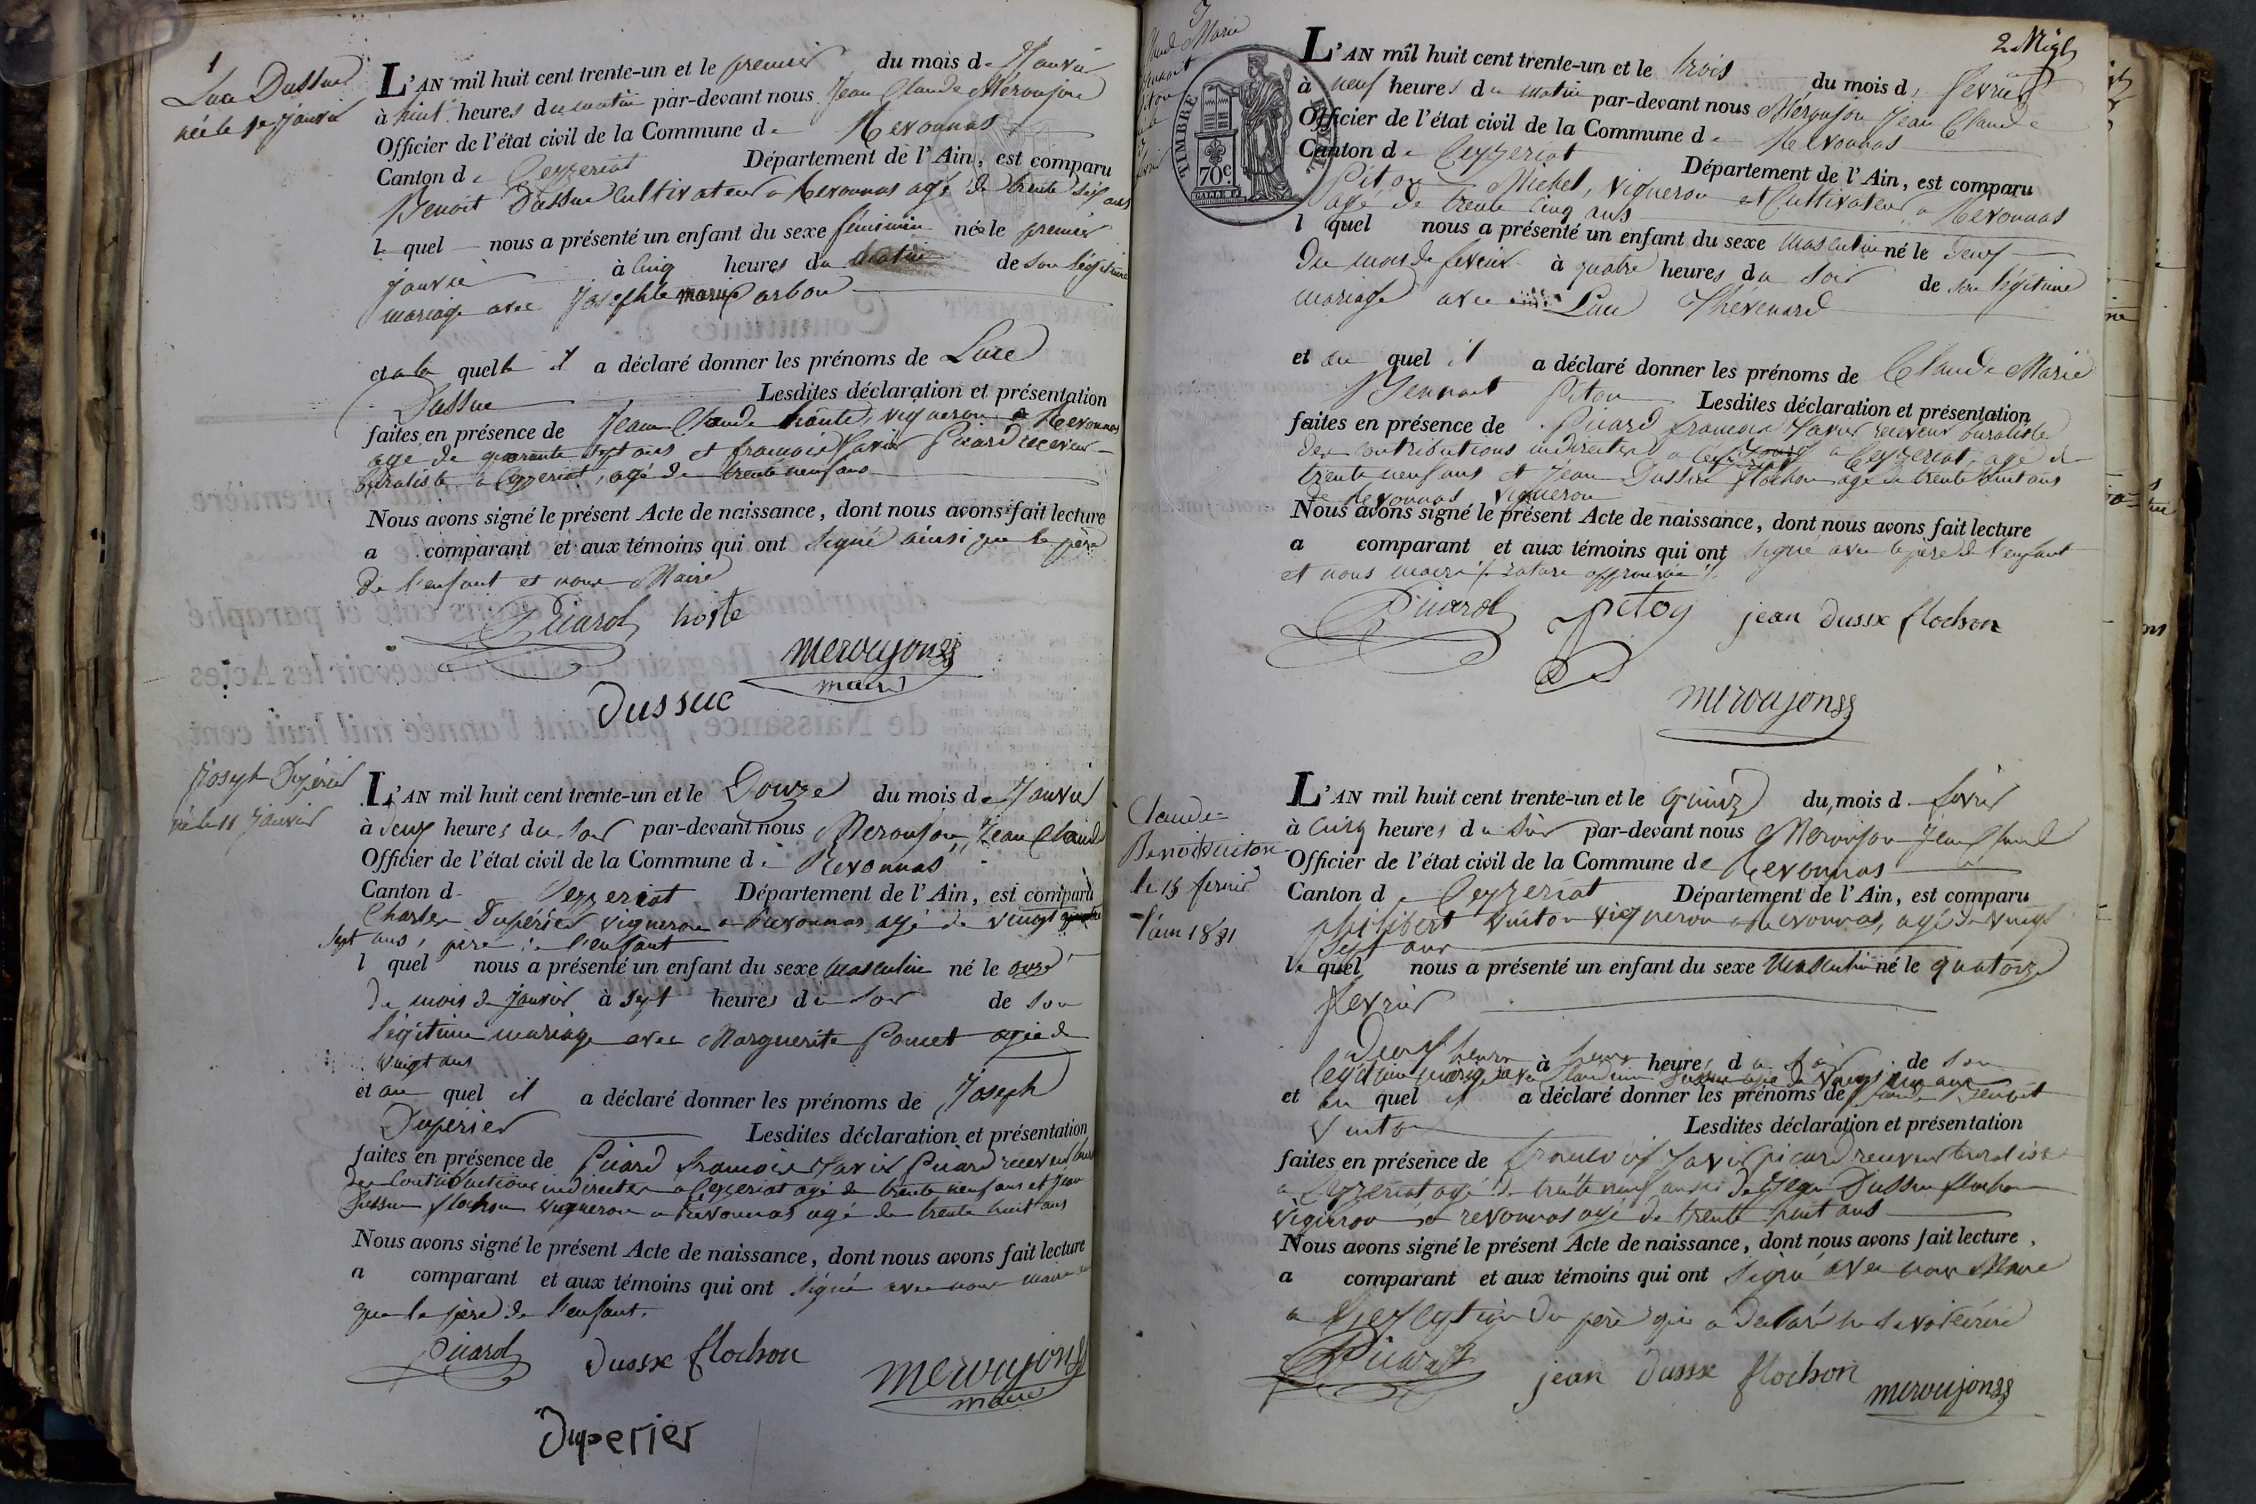 1
Luce Dussuc
née le 1er Janvier
L'AN mil huit cent trente-un et le premier du mois de Janvier
à huit heures du matin par-devant nous Jean Claude Meroujon
Officier de l'état civil de la Commune de Revonnas
Canton de Ceyzeriat Département de l'Ain, est comparu
Benoit Dussuc Cultivateur a Revonnas agé de trente six ans
le quel nous a présenté un enfant du sexe féminin née le premier
janvier à cinq heures du matin de son légitime
mariage avec Josephte marie Carbon
et a la quelle il a déclaré donner les prénoms de Luce
Dussuc Lesdites déclaration et présentation
faites en présence de Jean Claude hôute, vigneron a Revonnas
age de quarante sept ans et francois Xavier Picard receveur
buraliste a Ceyzeriat, agé de trente neuf ans
Nous avons signé le présent Acte de naissance, dont nous avons fait lecture
a comparant et aux témoins qui ont signé ainsi que le père
de l'enfant et nous Maire
Picard hoste
meroujon
maire
Dussuc
Joseph Dupérier
né le 11 Janvier
L'AN mil huit cent trente-un et le Douze du mois de Janvier
à deux heures du soir par-devant nous Meroujon, Jean Claude
Officier de l'état civil de la Commune de Revonnas
Canton de Ceyzeriat Département de l'Ain, est comparu
Charles Dupérier vigneron a Revonnas agé de vingt
sept ans, père de l'enfant
l quel nous a présenté un enfant du sexe masculin né le onze
du mois de janvier à sept heures du soir de son
légitime mariage avec Marguerite Poncet agée de
vingt ans
et au quel il a déclaré donner les prénoms de Joseph
Dupérier Lesdites déclaration et présentation
faites en présence de Picard francois Xavier Picard receveur
des Contributions indirectes a Ceyzeriat agé de trente neuf ans et Jean
Dussuc flochon vigneron a Revonnas agé de trente huit ans
Nous avons signé le présent Acte de naissance, dont nous avons fait lecture
a comparant et aux témoins qui ont signé avec nous maire
que le père de l'enfant.
Picard Dussuc flochon meroujon
maire
Duperier
Claude Marie
2
TIMBRE ROYAL
70 c.
L'AN mil huit cent trente-un et le trois du mois d, févrie
à neuf heures du matin par-devant nous Meroujon Jean Claude
Officier de l'état civil de la Commune de Revonnas
Canton de Ceyzeriat Département de l'Ain, est comparu
Piton Michel, vigneron et Cultivateur a Revonnas
agé de trente cinq ans
l quel nous a présenté un enfant du sexe masculin né le deux
du mois de fevrier à quatre heures du soir de son légitime
mariage avec Luce Thevenard
et au quel il a déclaré donner les prénoms de Claude Marie
Bennoit Piton Lesdites déclaration et présentation
faites en présence de Picard francois Xavier receveur buraliste
des Contributions indirectes a Ceyzeriat, age de
trente neuf ans et Jean Dussuc flochon agé de trente huit ans
de Revonnas vigneron
Nous avons signé le présent Acte de naissance, dont nous avons fait lecture
a comparant et aux témoins qui ont signé avec le père de l'enfant
et nous maire rature approuvée
Picard pitoy jean dussuc flochon
meroujon
Claude
Benoit Vuiton
le 15 fevrier
l'an 1831
L'AN mil huit cent trente-un et le quinze du mois d fevrier
à cinq heures du soir par-devant nous Meroujon Jean Claude
Officier de l'état civil de la Commune de Revonnas
Canton de Ceyzeriat Département de l'Ain, est comparu
philibert Vuiton vigneron a Revonnas, agé de vingt
sept ans
le quel nous a présenté un enfant du sexe masculin né le quatorze
fevrier
a deux heures à heures du soir de son
légitime mariage avec Claudine Dussuc agée de vingt cinq ans
et au quel il a déclaré donner les prénoms de Claude Benoit
Vuiton Lesdites déclaration et présentation
faites en présence de francois Xavier picard receveur buraliste
a Ceyzeriat agé de trente neuf ans et de Jean Dussuc flochon
vigneron a revonnas agé de trente huit ans
Nous avons signé le présent Acte de naissance, dont nous avons fait lecture,
a comparant et aux témoins qui ont signé avec nous Maire
a l'exception du père qui a declaré ne savoir écrire
Picard jean dussuc flochon meroujon